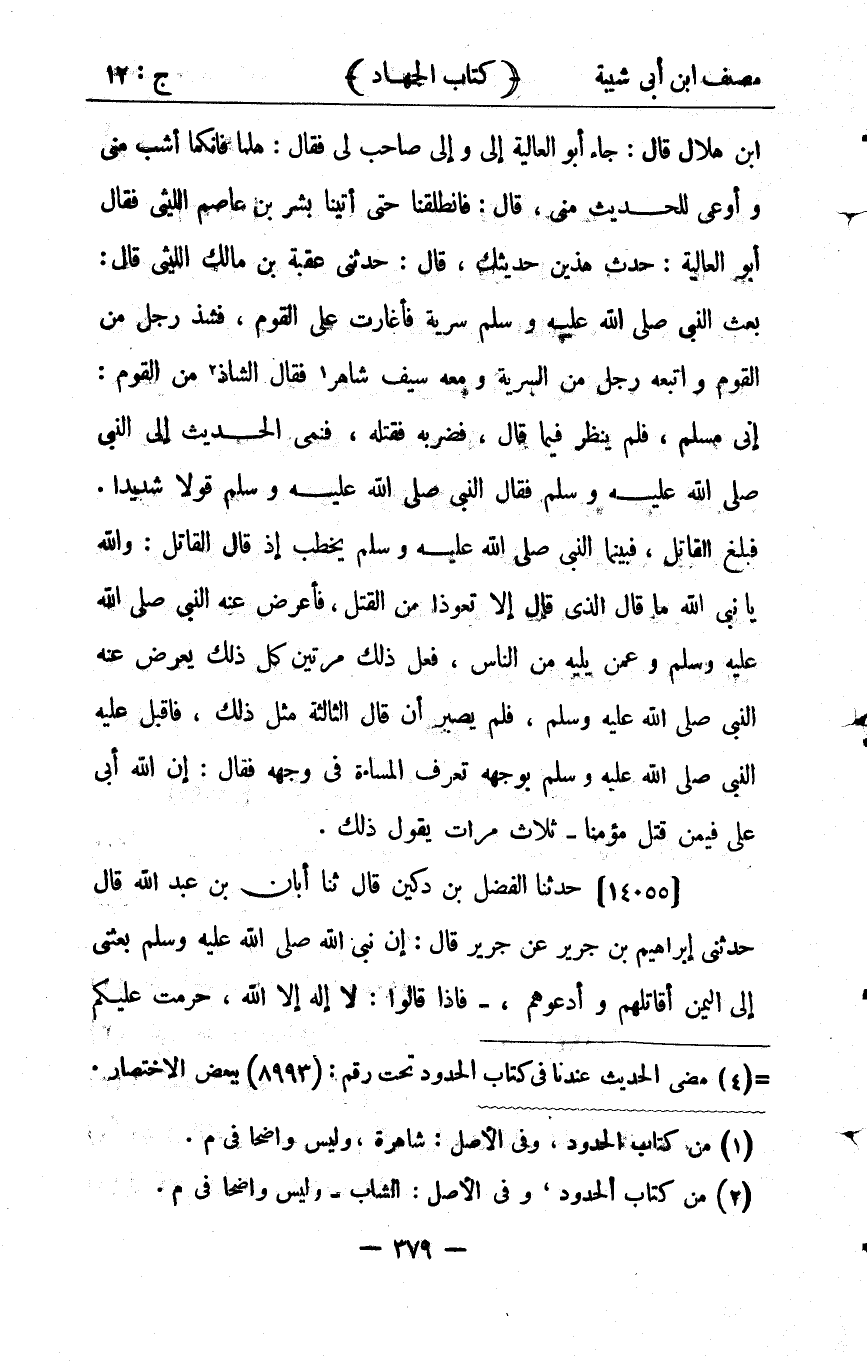 مصنف ابن أبى شيبة ﴿ كتاب الجهاد ﴾ ج : ١٢
ابن هلال قال : جاء أبو العالية إلى و إلى صاحب لى فقال : هلما فانكما أشب منى
و أوعى للحديث منى ، قال : فانطلقنا حتى أتينا بشر بن عاصم الليثى فقال
أبو العالية : حدث هذين حديثك ، قال : حدثنى عقبة بن مالك الليثى قال :
بعث النبى صلى الله عليه و سلم سرية فأغارت على القوم ، فشذ رجل من
القوم و اتبعه رجل من السرية و معه سيف شاهر١ فقال الشاذ٢ من القوم :
إنى مسلم ، فلم ينظر فيما قال ، فضربه فقتله ، فنمى الحديث إلى النبى
صلى الله عليه و سلم فقال النبى صلى الله عليه و سلم قولا شديدا .
فبلغ القاتل ، فبينما النبى صلى الله عليه و سلم يخطب إذ قال القاتل : والله
يا نبى الله ما قال الذى قال إلا تعوذا من القتل ، فأعرض عنه النبي صلى الله
عليه وسلم و عمن يليه من الناس ، فعل ذلك مرتين كل ذلك يعرض عنه
النبى صلى الله عليه وسلم ، فلم يصبر أن قال الثالثة مثل ذلك ، فاقبل عليه
النبى صلى الله عليه و سلم بوجهه تعرف المساءة فى وجهه فقال : إن الله أبى
على فيمن قتل مؤمنا ـ ثلاث مرات يقول ذلك .
[١٤٠٥٥] حدثنا الفضل بن دكين قال ثنا أبان بن عبد الله قال
حدثنى إبراهيم بن جرير عن جرير قال : إن نبى الله صلى الله عليه وسلم بعثنى
إلى اليمن أقاتلهم و أدعوهم ، ـ فاذا قالوا : لا إله إلا الله ، حرمت عليكم
=(٤) مضى الحديث عندنا فى كتاب الحدود تحت رقم : (٨٩٩٣) ببعض الاختصار .
(١) من كتاب الحدود ، وفى الأصل : شاهرة ، وليس واضحا فى م .
(٢) من كتاب الحدود ، و فى الأصل : الشاب ـ وليس واضحا فى م .
— ٣٧٩ —